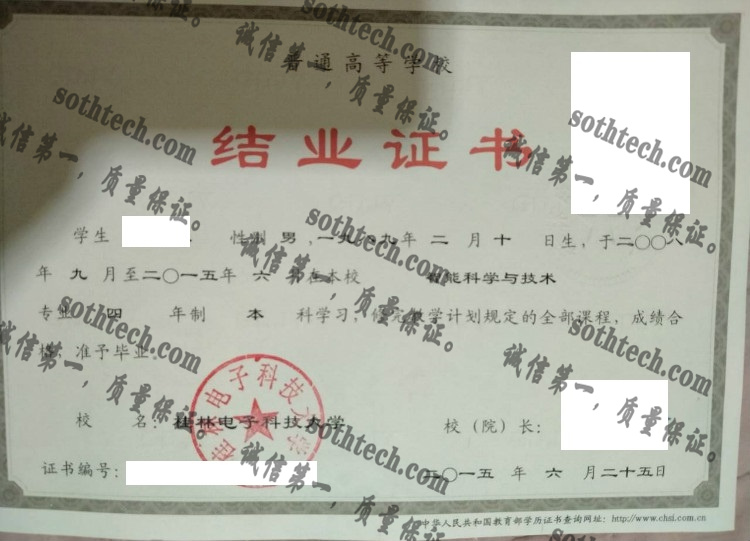 普通高等学校
结业证书
学生 性别 男 ,一九 九年 二 月 十 日生, 于二〇〇八
年 九 月至二〇一五年 六 月在本校 智能科学与技术
专业 四 年制 本 科学习, 修完教学计划规定的全部课程, 成绩合
格, 准予毕业
校 名: 桂林电子科技大学 校(院)长:
桂林电子科技大学
证书编号: 二〇一五 年 六 月二十五日
中华人民共和国教育部学历证书查询网址: http://www.chsi.com.cn
sothtech.com
诚信第一,质量保证。
sothtech.com
诚信第一,质量保证。
sothtech.com
诚信第一,质量保证。
sothtech.com
诚信第一,质量保证。
sothtech.com
诚信第一,质量保证。
sothtech.com
诚信第一,质量保证。
sothtech.com
诚信第一,质量保证。